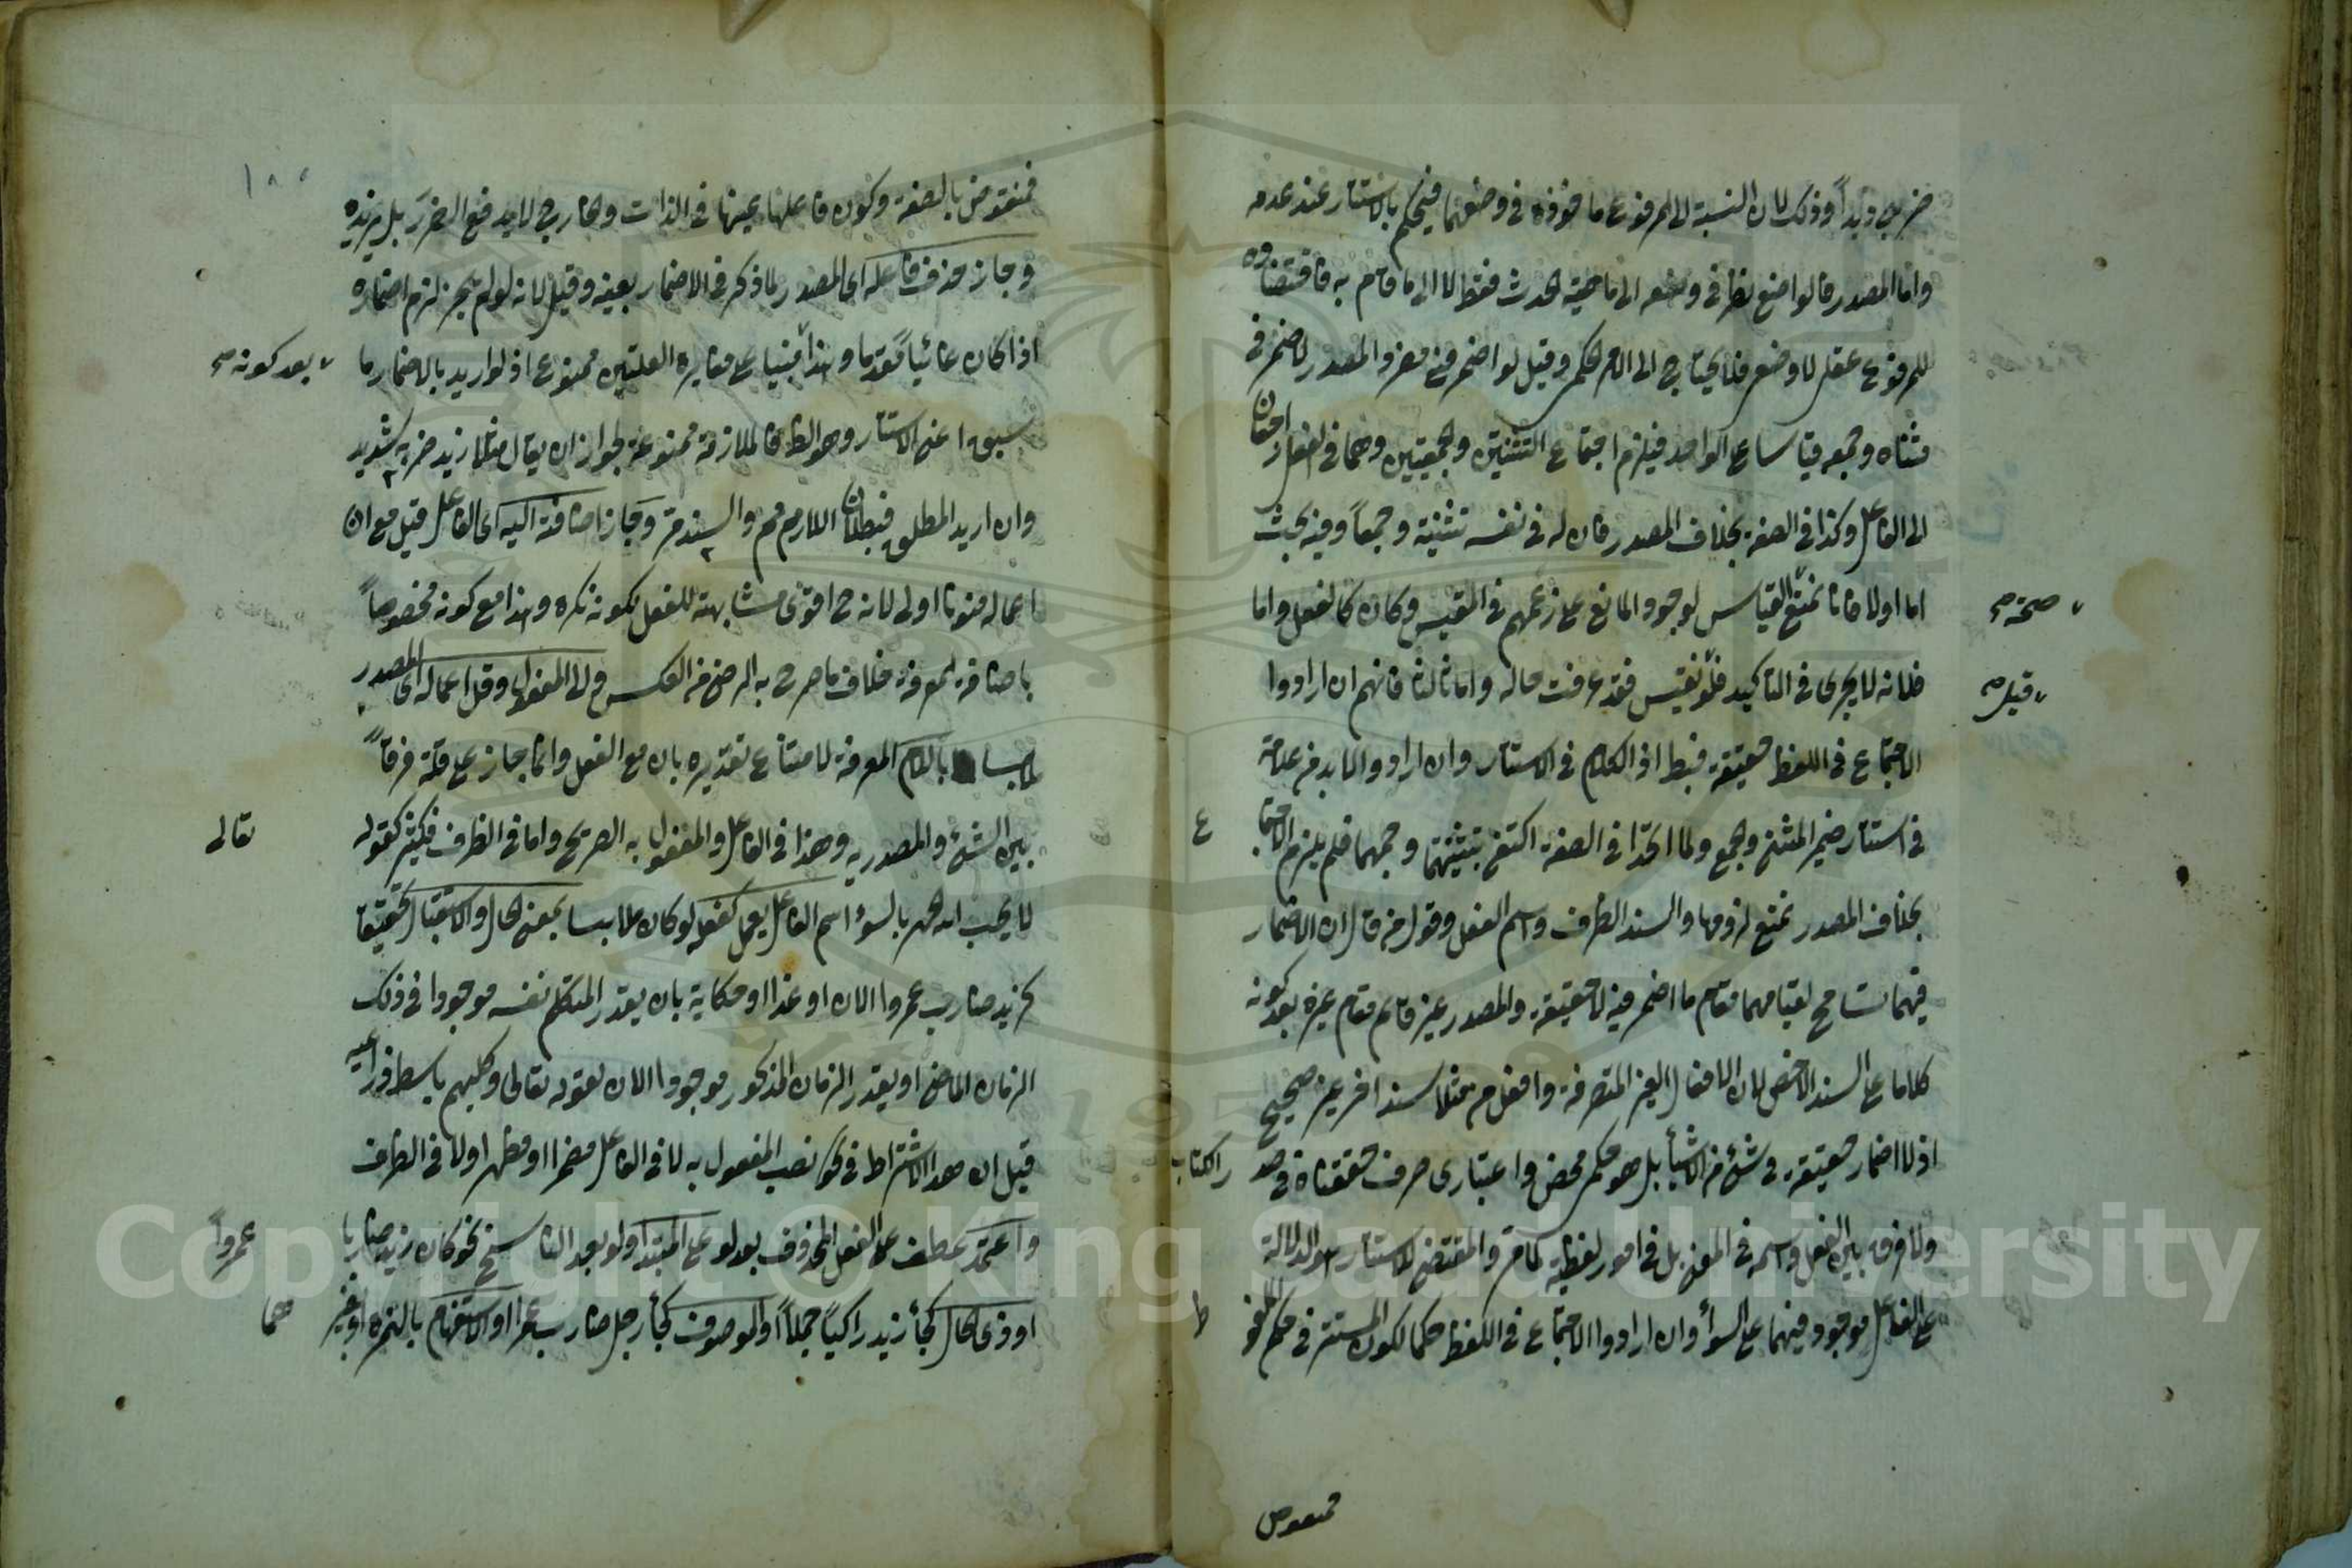 ضربى زيداً وذلك لان النسبة الى المرفوع ماخوذة فى وضعهما فيحكم بالاستتار عند عدمه
واما المصدر فالواضع نظر فى وضعه الى ماهية الحدث فقط لا الى ما قام به فاقتضاؤه
للمرفوع عقلى لا وضعى فلا يحتاج الى الحكم وقيل لو اضمر فى مفرد المصدر لاضمر فى
مثناه وجمعه قياسا على الواحد فيلزم اجتماع التثنيتين والجمعيتين وهما فى الفعل راجعتان
الى الفاعل وكذا فى الصفة بخلاف المصدر فان له فى نفسه تثنية وجمعاً وفيه بحث
اما اولا فانا نمنع القياس لوجود المانع على زعمهم فى المقيس وكان كالفعل واما
صحة صح
فلانه لا يجرى فى التاكيد فلو نقيس فقد عرفت حاله واما ثالثا فانهم ان ارادوا
قيل صح
الاجتماع فى اللفظ حقيقة فبط اذ الكلام فى الاستتار وان ارادوا لابد من علامة
فى استتار ضمير المثنى والجمع ولما اتحدا فى الصفة اكتفى بتثنيتها وجمعها فلم يلزم الاجتما
ع
بخلاف المصدر نمنع لزومها والسند الظرف واسم الفعل وقول من قال ان الاضمار
فيهما تسامح لقيامهما مقام ما اضمر فيه لا حقيقة والمصدر غير قائم مقام غيره بعد كونه
كلاما على السند الاخص لان الافعال الغير المتصرفة وافعل مثلا سند اخر غير صحيح
اذ لا اضمار حقيقة فى شئ من الاشياء بل هو حكم محض واعتبارى صرف حققناه فى صد
ر الكتاب
ولا فرق بين الفعل واسمه فى المعنى بل فى امور لفظية كما مر والمقتضى للاستتار هو الدلالة
على الفاعل موجود فيهما على السواء وان ارادوا الاجتماع فى اللفظ حكما لكون المستتر فى حكم الملفو
ظ
فمنقوض
فمنقوض بالصفة وكون فاعلها عينها فى الذات والخارج لا يدفع الضرر بل يزيده
وجاز حذف فاعله اى المصدر لما ذكر فى الاضمار بعينه وقيل لانه لو لم يجز لزم اضماره
اذا كان غائبا تقدما وهذا مبنيا على مغايرة العلتين ممنوع اذ لو اريد بالاضمار ما
بعد كونه صح
سبق اعنى الاستتار وهو الظ فالملازمة ممنوعة لجواز ان يقال مثلا زيد ضربه شديد
وان اريد المطلق فبطلان اللازم مم والسند مر وجاز اضافته اليه اى الفاعل قيل مع ان
اعماله منونا اولى لانه ح اقوى مشابهة للفعل لكونه نكرة وهذا مع كونه مخصوصاً
باضافة لمعرفة خلاف ما صرح به الرضى من العكس والى المفعول وقل اعماله اى المصدر
ملابسا باللام المعرفة لامتناع تقديره بان مع الفعل وانما جاز على قلة فرقاً
بين الشئ والمصدرية وهذا فى الفاعل والمفعول به الصريح واما فى الظرف فكثير كقوله
تعالى
لا يحب الله الجهر بالسوء اسم الفاعل يعمل كفعله لو كان ملابسا بمعنى الحال او الاستقبال تحقيقا
كزيد ضارب عمروا الان او غدا او حكاية بان يقدر المتكلم نفسه موجودا فى ذلك
الزمان الماضى او يقدر الزمان المذكور موجودا الان كقوله تعالى وكلبهم باسط ذراعيه
قيل ان هذا الاشتراط فى نحو نصب المفعول به لا فى الفاعل مضمرا او مظهرا ولا فى الظرف
واعتمد عطف على الفعل المحذوف بعد لو على المبتدا ولو بعد الناسخ نحو كان زيد ضاربا
عمرواً
او ذى الحال كجاء زيد راكبا جملاً او الموصوف كجاء رجل ضارب عمرا او الاستفهام بالهمزة او غير
هما